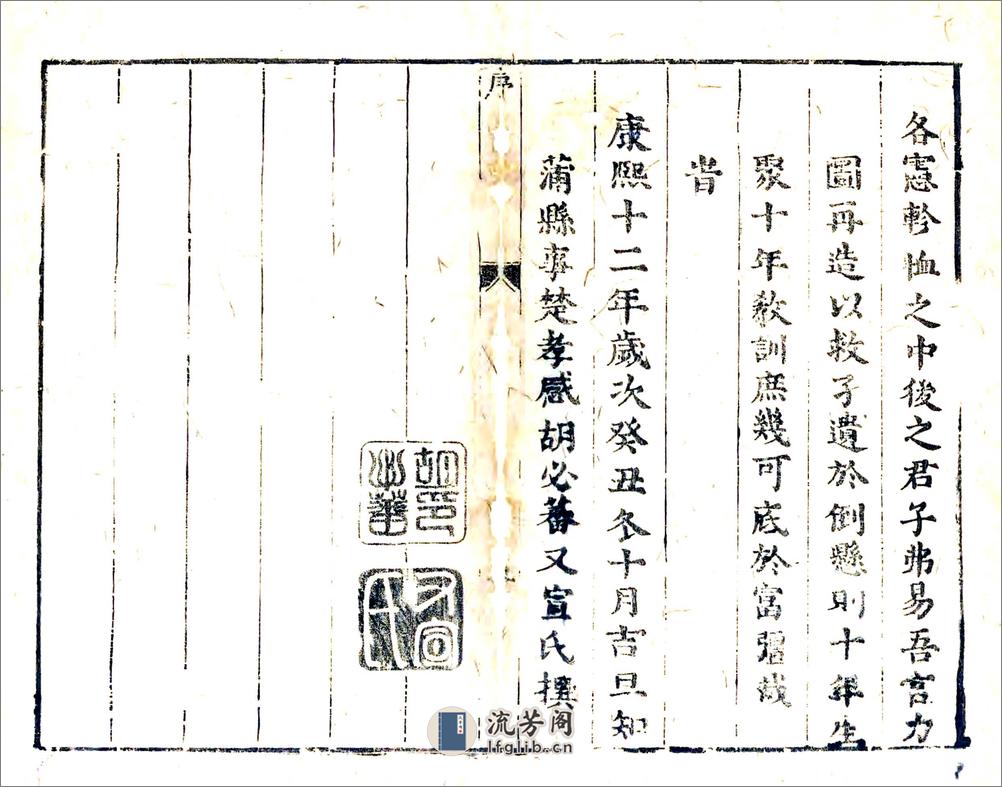 各憲軫恤之中後之君子弗易吾言力
圖再造以救孑遺於倒懸則十年生
聚十年教訓庶幾可底於富彊哉
旹
康熙十二年歲次癸丑冬十月吉旦知
蒲縣事楚孝感胡必蕃又宣氏撰
序
八
胡印
必蕃
又宣
氏
流芳阁
lfglib.cn